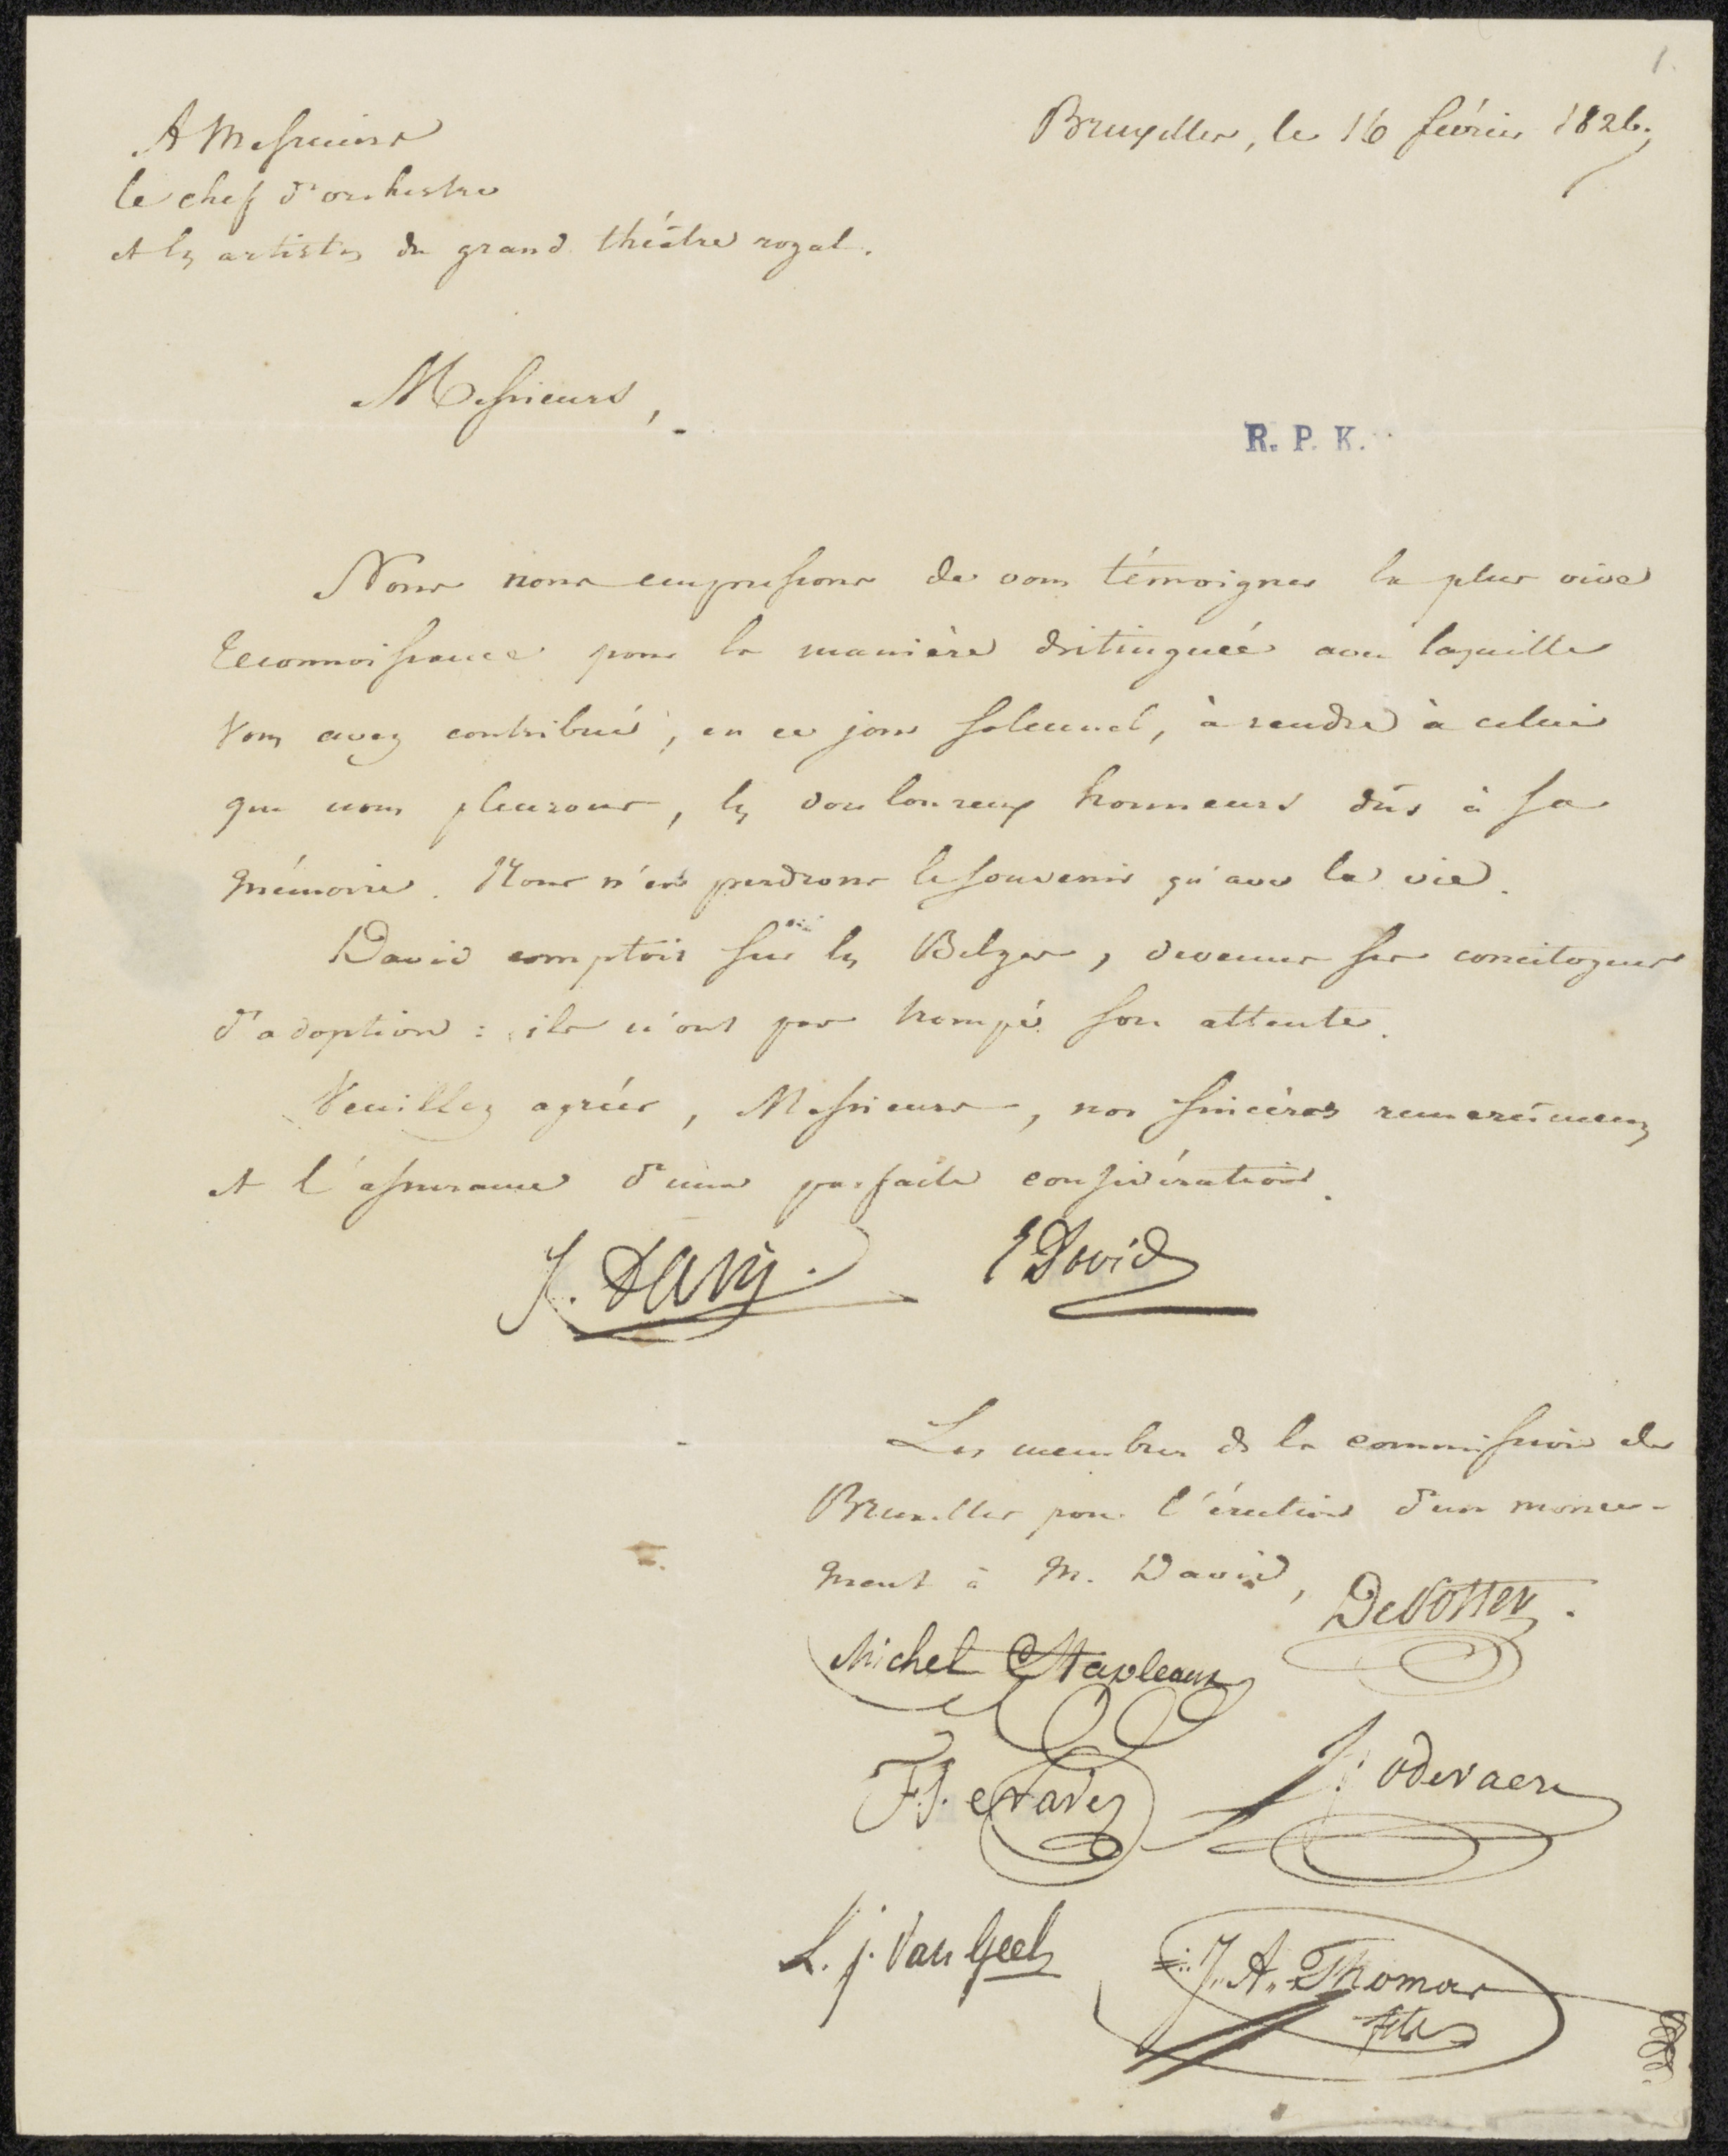 1.
Bruxelles, le 16 février 1826.
A Messieurs
le chef d'orchestre
et les artistes du grand théâtre royal.
Messieurs,
R. P. K.
Nous nous empressons de vous témoigner la plus vive
reconnoissance pour la manière distinguée avec laquelle
vous avez contribué, en ce jour solennel, à rendre à celui
que nous pleurons, les douloureux honneurs dûs à sa
mémoire. Nous n'en perdrons le souvenir qu'avec la vie.
David comptoit sur les Belges, devenus ses concitoyens
d'adoption : ils n'ont pas trompé son attente.
Veuillez agréer, Messieurs, nos sincères remercîmens
et l'assurance d'une parfaite considération.
J. David. E David
Les membres de la commission de
Bruxelles pour l'érection d'un monu-
ment à M. David,
DePotter.
Michel Stapleaux
F.J. Navez
J. Odevaere
L. j. Van Geel
J. A. Thomas
fils